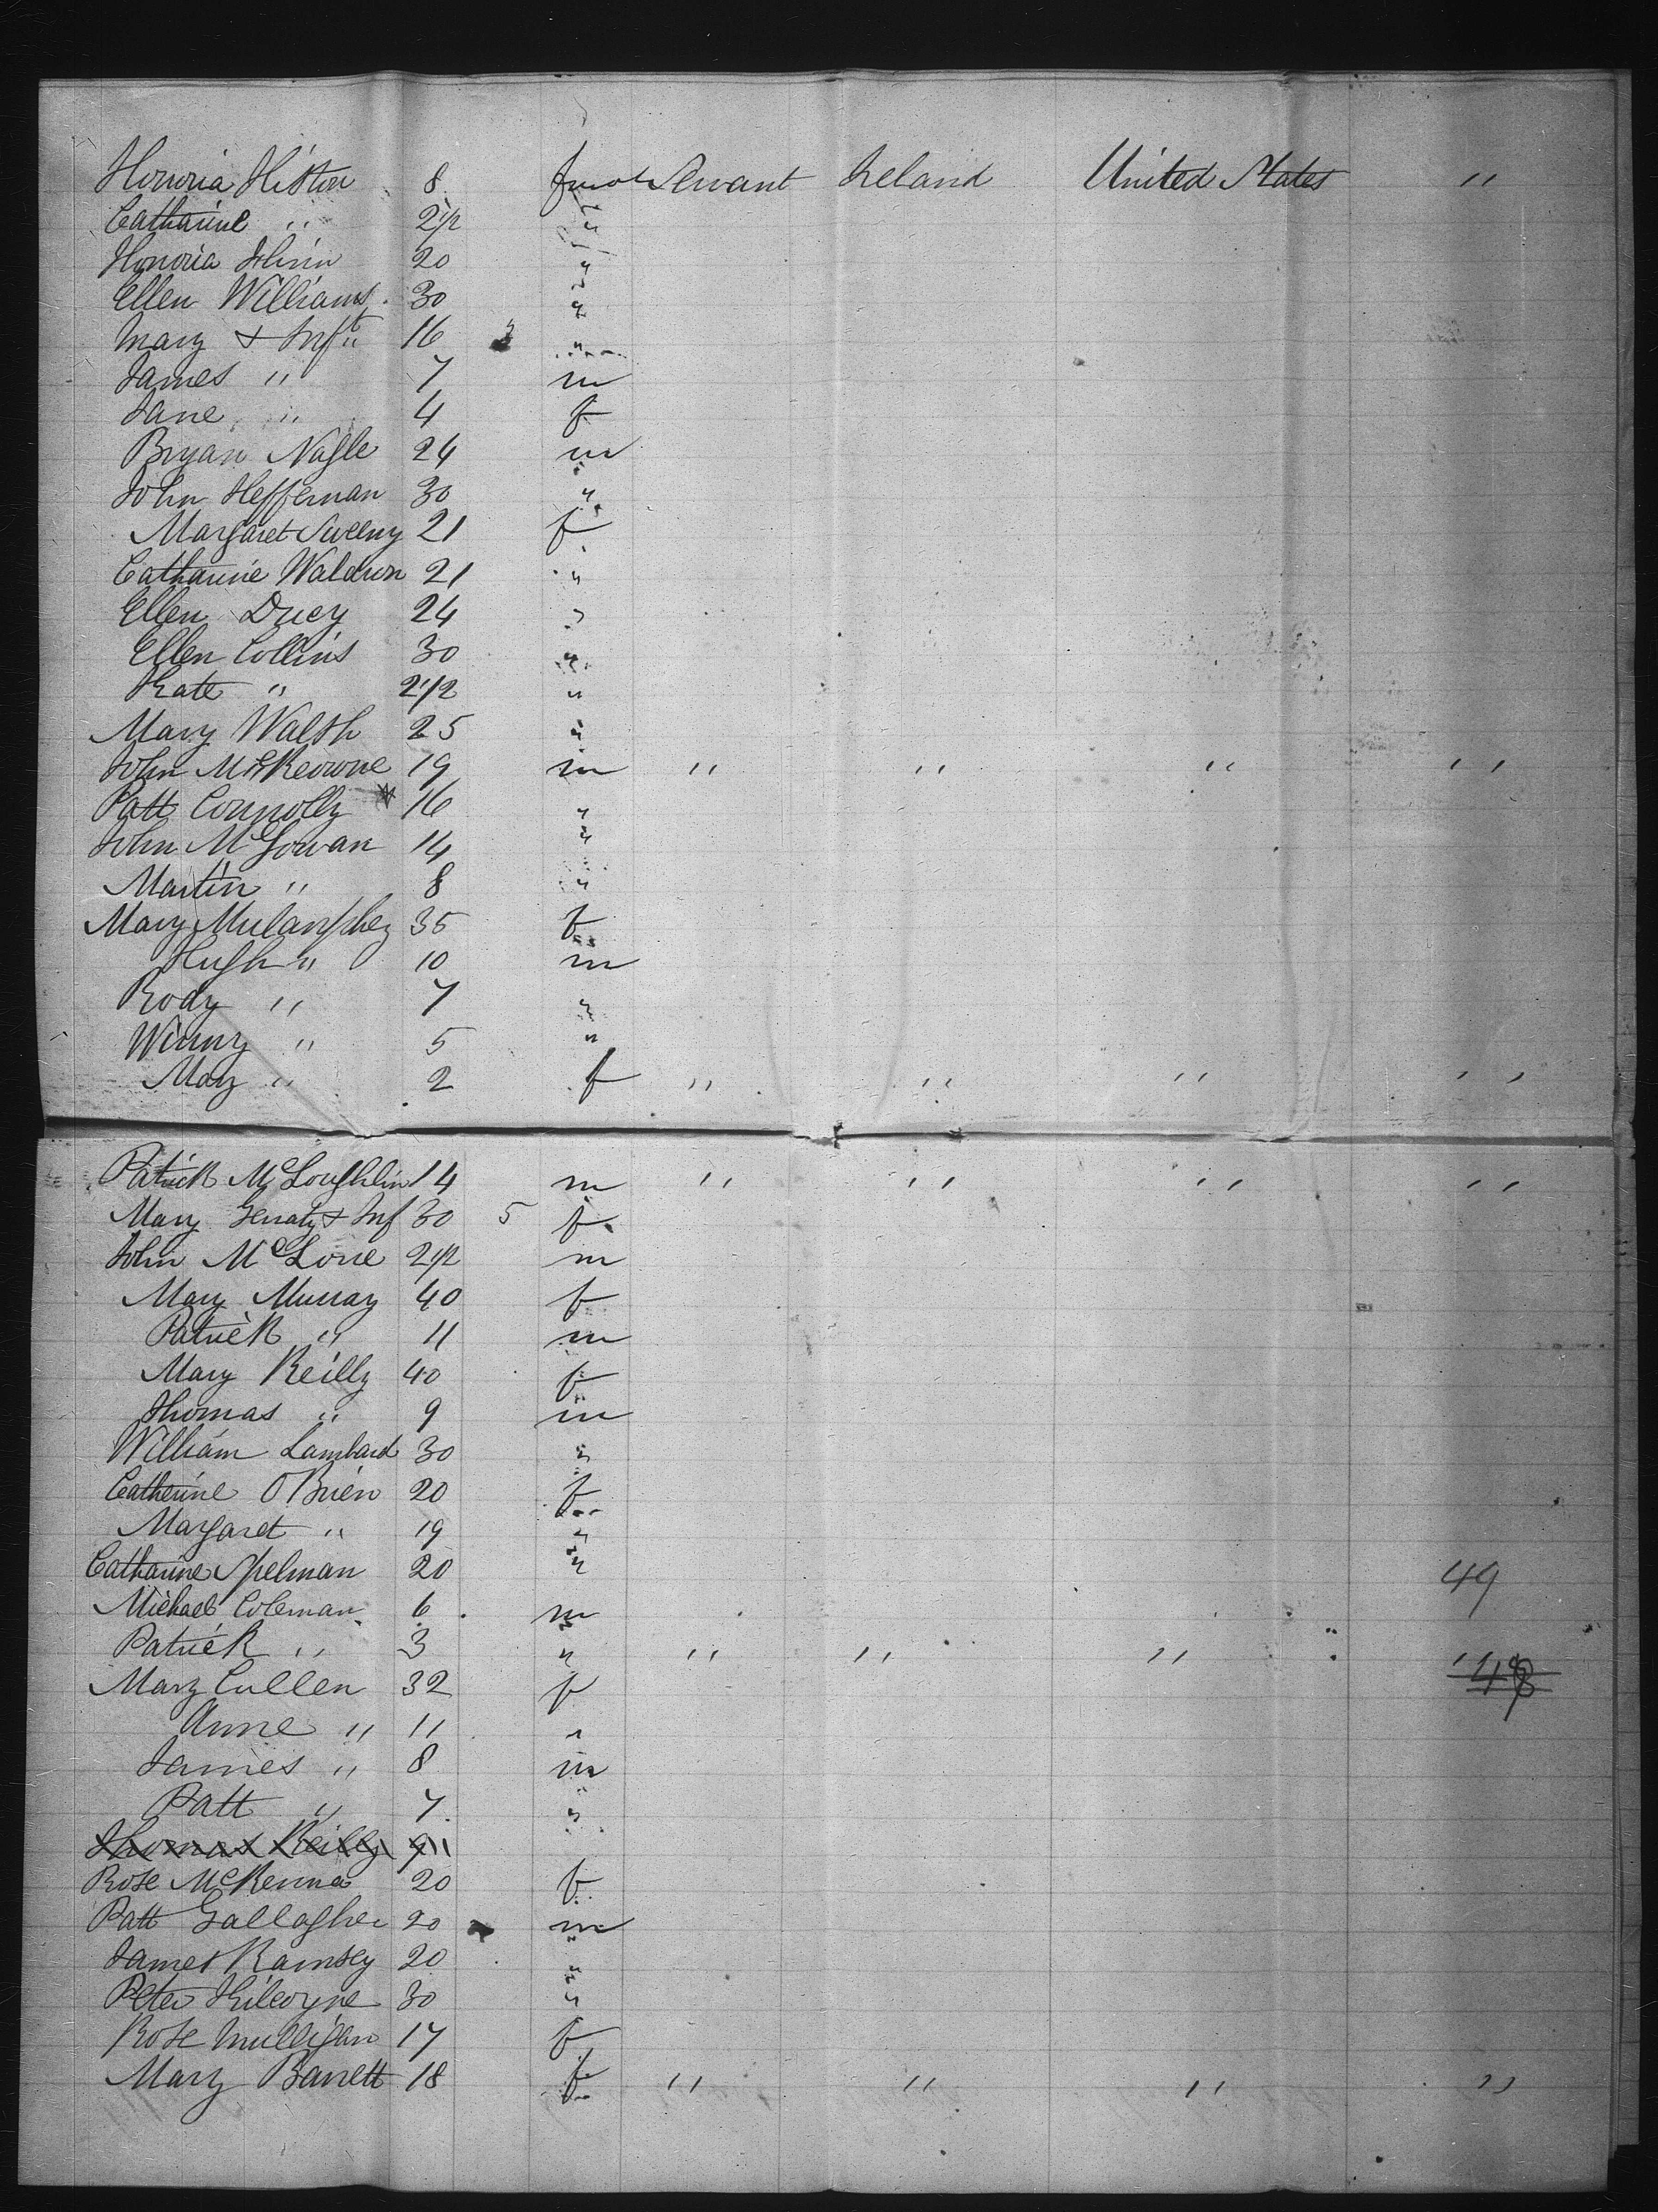 Honoria Histon 8 Servant Ireland United States "
Catharine " 2 1/2 "
Honoria 20 "
Ellen Williams 30 "
Mary & Inft " 16 "
James " 7 m
Jane " 4 f
Bryan Nagle 24 m
John Heffernan 30 "
Margaret Sweeny 21 f
Catharine Waldron 21 "
Ellen Ducy 24 "
Ellen Collins 30 "
Kate " 2 1/2 "
Mary Walsh 25 "
John McKeowne 19 m " " " "
Patt Connolly 16 "
John McGowan 14 "
Martin " 8 "
Mary Mulanphey 35 f
Hugh " 10 m
Rody " 7 "
Winny " 5 "
May " 2 f " " " "
Patrick McLoughlin 14 m " " " "
Mary Geraty & Inf 30 5 f
John McLone 2 1/2 m
Mary Murray 40 f
Patrick " 11 m
Mary Reilly 40 f
Thomas " 9 m
William Lambard 30 "
Catherine O'Brien 20 f
Margaret " 19 "
Catharine Spelman 20 " 49
Michael Coleman 6 m
Patrick " 3 " " " " "
Mary Cullen 32 f 48
Anne " 11 "
James " 8 m
Patt " 7 "
Thomas Reilly 9 "
Rose McKenna 20 f
Patt Gallagher 20 m
James Ramsey 20 "
Peter Kilcoyne 30 "
Rose Mulligan 17 f
Mary Barrett 18 f " " " "